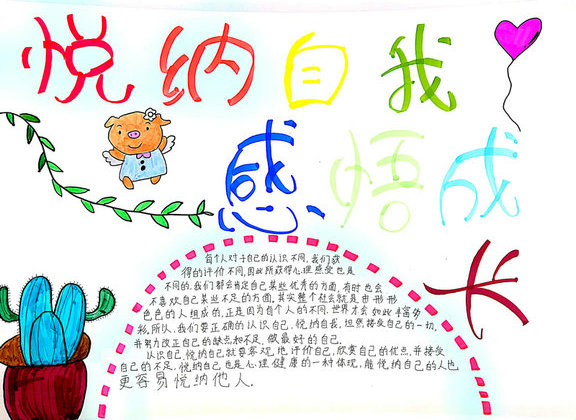 悦纳自我
感悟成长
每个人对于自己的认识不同,我们获
得的评价不同,因此所获得心理感受也是
不同的.我们都会肯定自己某些优秀的方面,有时也会
不喜欢自己某些不足的方面,其实整个社会就是由形形
色色的人组成的,正是因为每个人的不同,世界才会如此丰富多
彩,所以,我们要正确的认识自己,悦纳自我,坦然接受自己的一切,
并努力改正自己的缺点和不足,做最好的自己.
认识自己,悦纳自己就要客观地评价自己,欣赏自己的优点,并接受
自己的不足,悦纳自己也是心理健康的一种体现,能悦纳自己的人也
更容易悦纳他人.